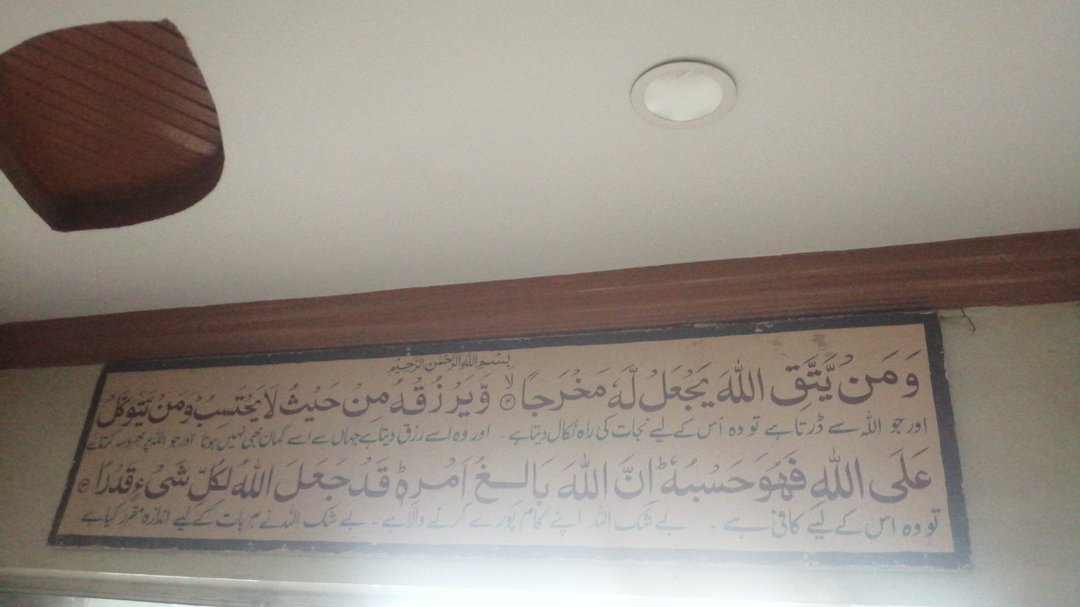 بسم الله الرحمن الرحيم
وَمَنْ يَّتَّقِ اللّٰهَ يَجْعَلْ لَّهٗ مَخْرَجًا ۙ﴿۲﴾ وَّيَرْزُقْهُ مِنْ حَيْثُ لَا يَحْتَسِبُ وَمَنْ يَّتَوَكَّلْ
اور جو اللہ سے ڈرتا ہے تو وہ اس کے لیے نجات کی راہ نکال دیتا ہے۔ اور وہ اسے رزق دیتا ہے جہاں سے اسے گمان بھی نہیں ہوتا اور جو اللہ پر بھروسہ کرتا ہے
عَلَى اللّٰهِ فَهُوَ حَسْبُهٗ اِنَّ اللّٰهَ بَالِغُ اَمْرِهٖ قَدْ جَعَلَ اللّٰهُ لِكُلِّ شَیْءٍ قَدْرًا ﴿۳﴾
تو وہ اس کے لیے کافی ہے۔ بے شک اللہ اپنے کام پورے کرنے والا ہے۔ بے شک اللہ نے ہر بات کے لیے اندازہ مقرر کیا ہے